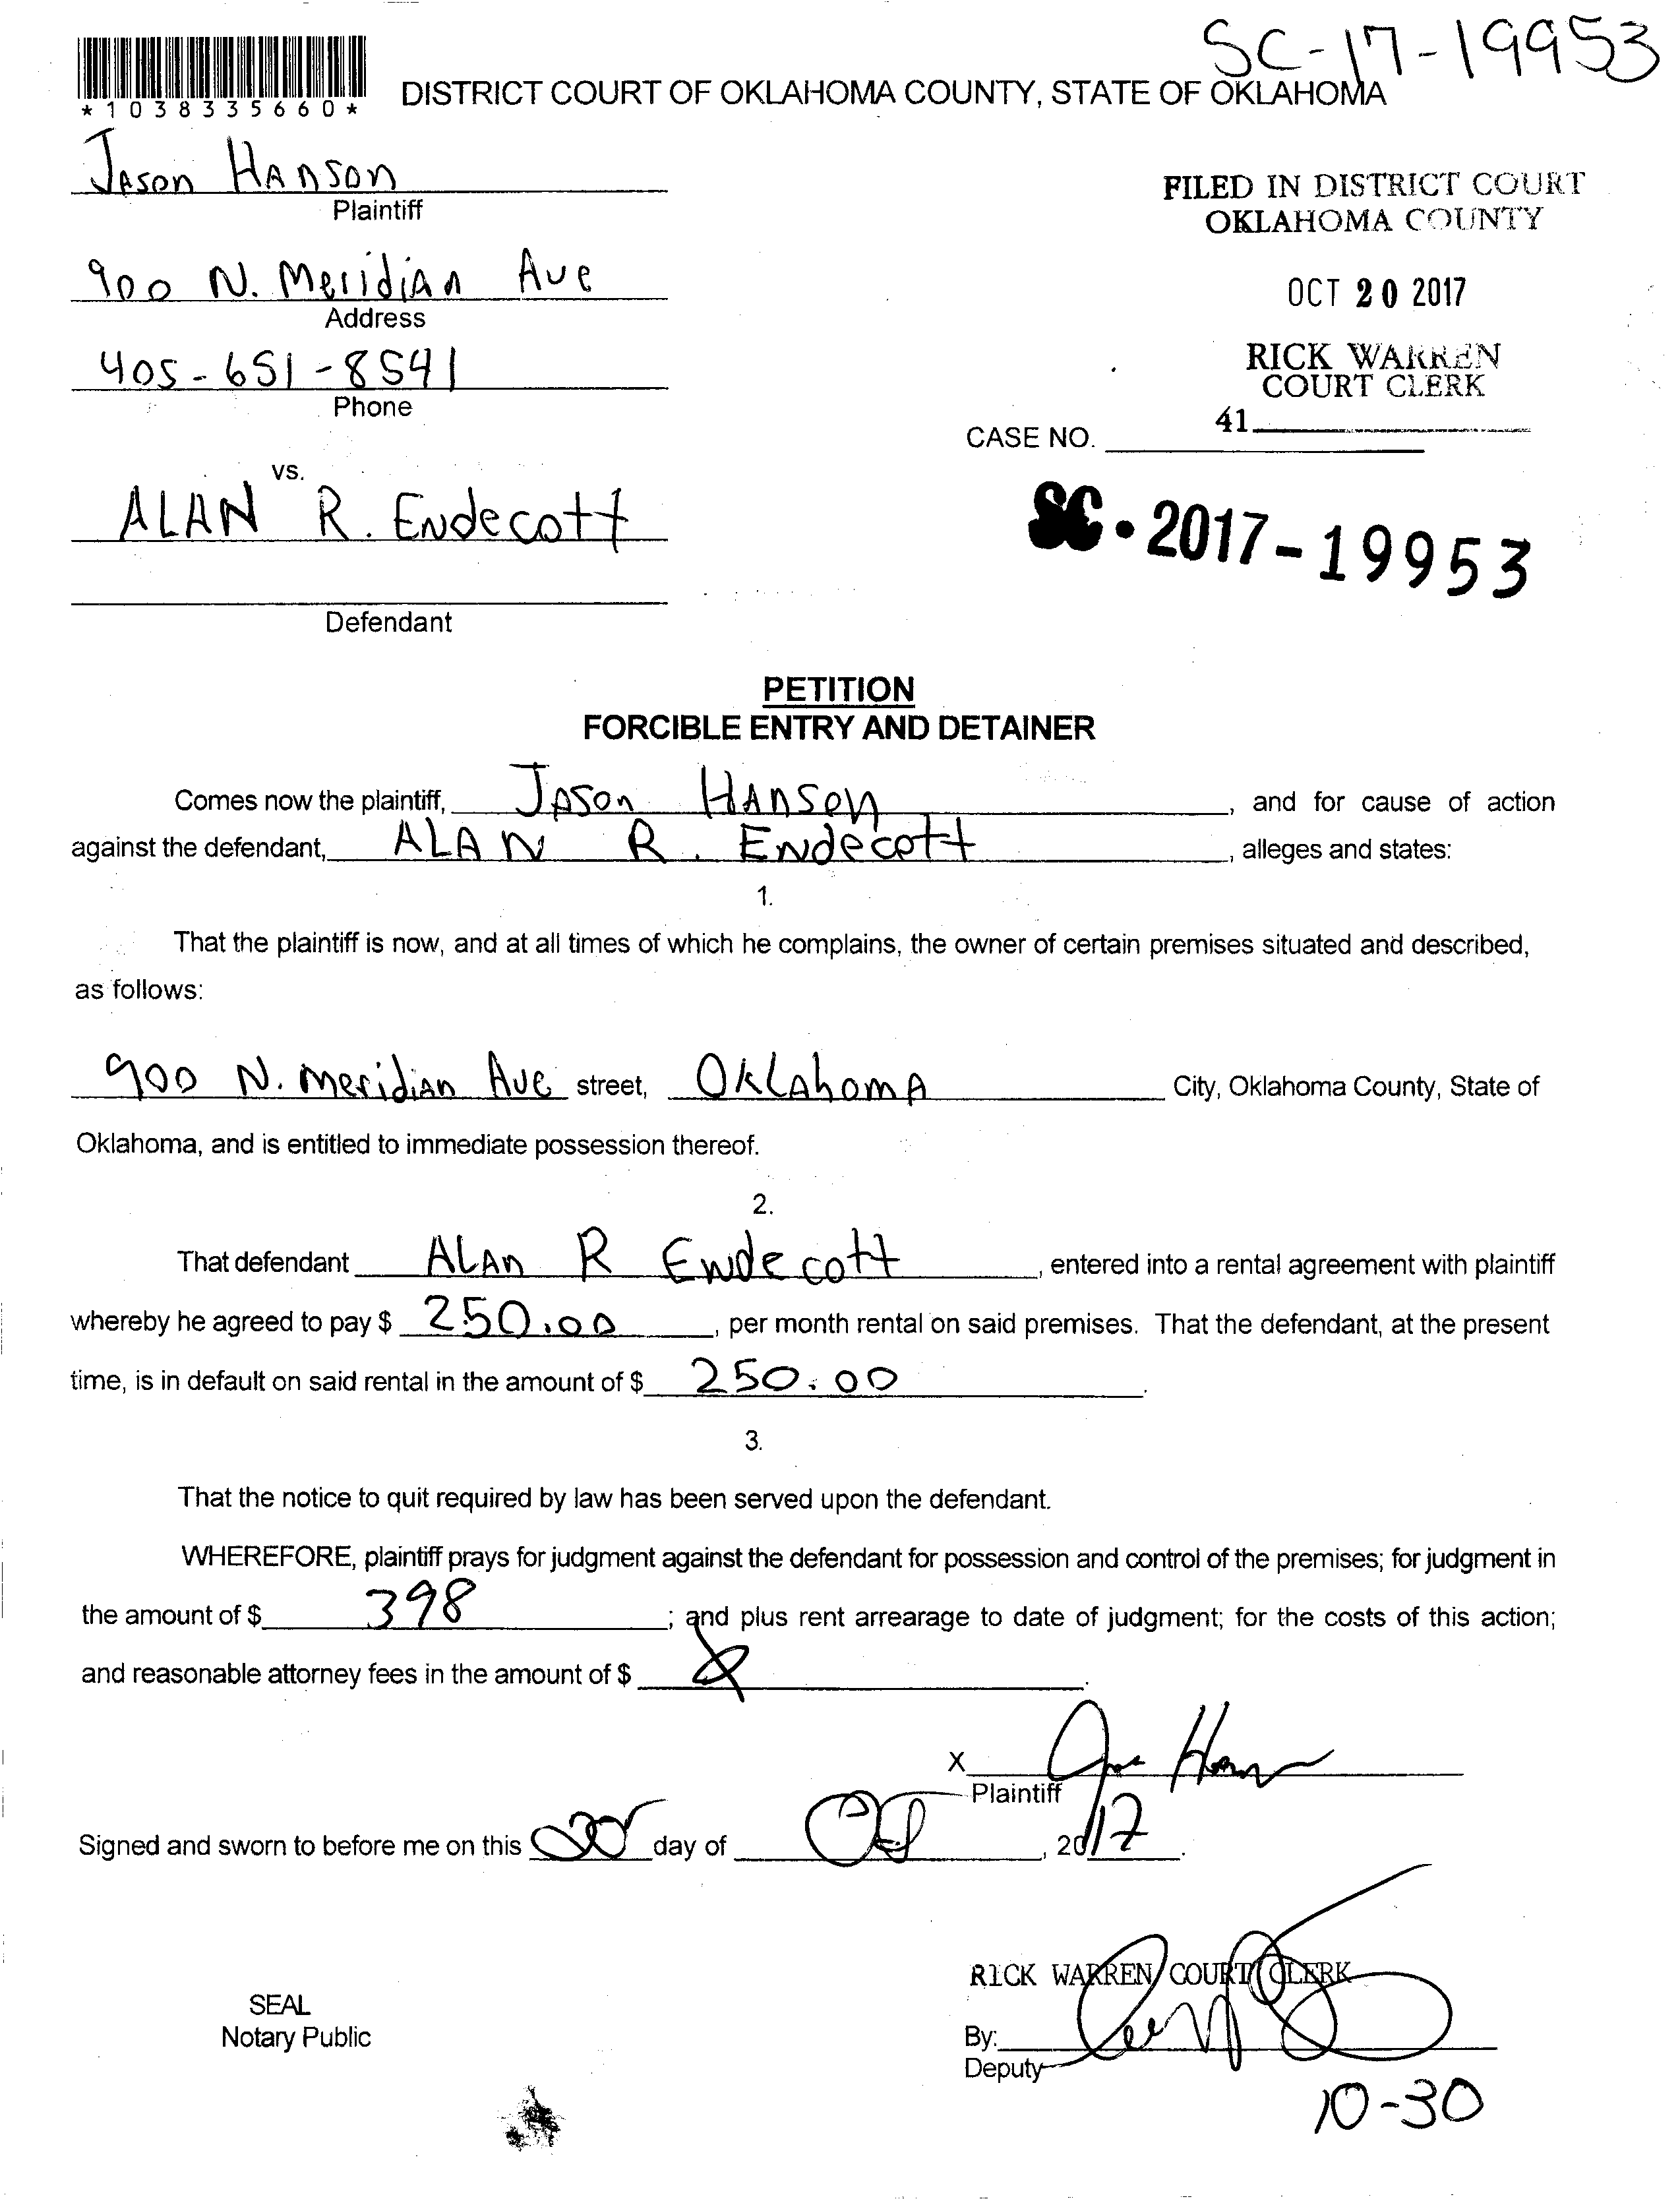 SC-17-19953
*1038335660*
DISTRICT COURT OF OKLAHOMA COUNTY, STATE OF OKLAHOMA
Jason Hanson
Plaintiff
FILED IN DISTRICT COURT
OKLAHOMA COUNTY
900 N. Meridian Ave
Address
OCT 20 2017
405-651-8541
Phone
RICK WARREN
COURT CLERK
41
CASE NO.
vs.
ALAN R. Endecott
SC-2017-19953
Defendant
PETITION
FORCIBLE ENTRY AND DETAINER
Comes now the plaintiff, Jason Hanson, and for cause of action
against the defendant, ALAN R. Endecott, alleges and states:
1.
That the plaintiff is now, and at all times of which he complains, the owner of certain premises situated and described,
as follows:
900 N. Meridian Ave street, Oklahoma City, Oklahoma County, State of
Oklahoma, and is entitled to immediate possession thereof.
2.
That defendant Alan R Endecott, entered into a rental agreement with plaintiff
whereby he agreed to pay $ 250.00, per month rental on said premises. That the defendant, at the present
time, is in default on said rental in the amount of $ 250.00.
3.
That the notice to quit required by law has been served upon the defendant.
WHEREFORE, plaintiff prays for judgment against the defendant for possession and control of the premises; for judgment in
the amount of $ 398; and plus rent arrearage to date of judgment; for the costs of this action;
and reasonable attorney fees in the amount of $.
X
Plaintiff
Signed and sworn to before me on this 20 day of Oct, 2017.
RICK WARREN COURT CLERK
SEAL
Notary Public
By:
Deputy
10-30